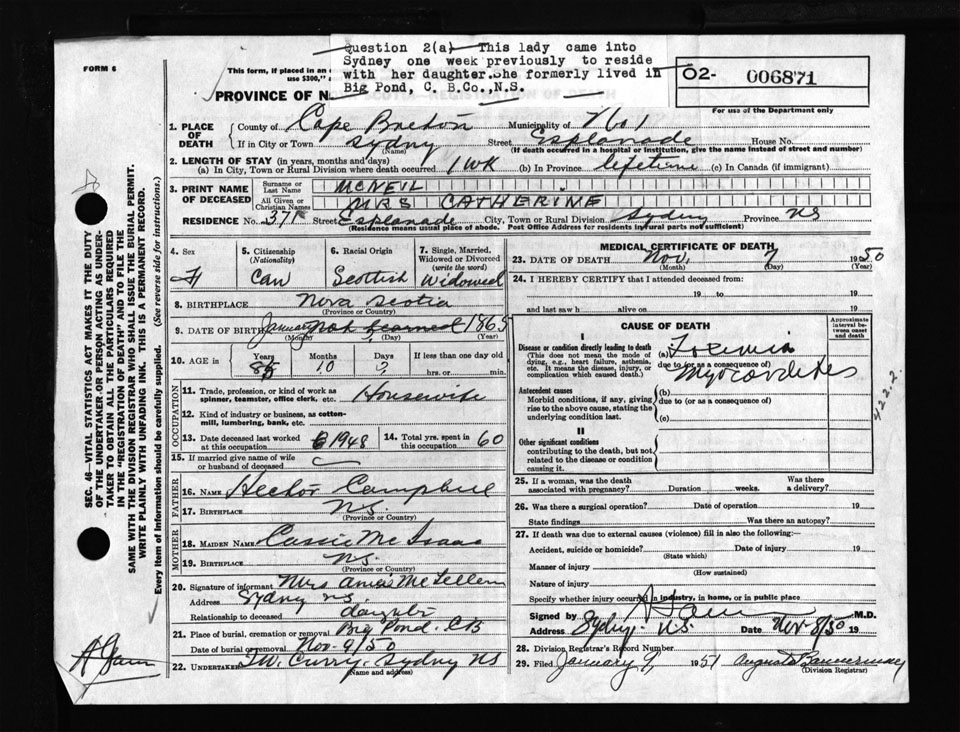 Question 2(a) This lady came into
Sydney one week previously to reside
with her daughter. She formerly lived in
Big Pond, C. B.Co., N.S.
FORM 6
This form, if placed in an
use $300,"
PROVINCE OF N
02- 006871
For use of the Department only
1. PLACE OF DEATH
County of Cape Breton Municipality of No 1
If in City or Town Sydney Street Esplanade House No.
(Name) (If death occurred in a hospital or institution, give the name instead of street and number)
2. LENGTH OF STAY (in years, months and days)
(a) In City, Town or Rural Division where death occurred 1 WK (b) In Province lifetime (c) In Canada (if immigrant)
3. PRINT NAME OF DECEASED
Surname or Last Name MCNEIL
All Given or Christian Names MRS CATHERINE
RESIDENCE No. 371 Street Esplanade City, Town or Rural Division Sydney Province NS
(Residence means usual place of abode. Post Office Address for residents in rural parts not sufficient)
4. Sex F
5. Citizenship (Nationality) Can
6. Racial Origin Scottish
7. Single, Married, Widowed or Divorced (write the word) Widowed
8. BIRTHPLACE Nova Scotia
(Province or Country)
9. DATE OF BIRTH January not learned 1865
(Month) (Day) (Year)
10. AGE in Years Months 10 Days 3 If less than one day old
hrs. or min.
OCCUPATION
11. Trade, profession, or kind of work as spinner, teamster, office clerk, etc. Housewife
12. Kind of industry or business, as cotton-mill, lumbering, bank, etc.
13. Date deceased last worked at this occupation 1948
14. Total yrs. spent in this occupation 60
15. If married give name of wife or husband of deceased
FATHER
16. NAME Hector Campbell
17. BIRTHPLACE NS.
(Province or Country)
MOTHER
18. MAIDEN NAME Cassie McIsaac
19. BIRTHPLACE NS
(Province or Country)
20. Signature of informant Mrs
Address Sydney NS.
Relationship to deceased daughter
21. Place of burial, cremation or removal Big Pond. CB
Date of burial or removal Nov. 9/50
22. UNDERTAKER T.W. Curry. Sydney NS
(Name and address)
MEDICAL CERTIFICATE OF DEATH
23. DATE OF DEATH Nov. 7 1950
(Month) (Day) (Year)
24. I HEREBY CERTIFY that I attended deceased from:
19 to 19
and last saw h alive on 19
CAUSE OF DEATH
Approximate interval between onset and death
I
Disease or condition directly leading to death
(This does not mean the mode of dying, e.g., heart failure, asthenia, etc. It means the disease, injury, or complication which caused death.)
(a) Toxemia
due to (or as a consequence of)
Myocarditis
Antecedent causes
Morbid conditions, if any, giving rise to the above cause, stating the underlying condition last.
(b)
due to (or as a consequence of)
(c)
422.2
II
Other significant conditions
contributing to the death, but not related to the disease or condition causing it.
25. If a woman, was the death associated with pregnancy? Duration weeks. Was there a delivery?
26. Was there a surgical operation? Date of operation 19
State findings Was there an autopsy?
27. If death was due to external causes (violence) fill in also the following:—
Accident, suicide or homicide? Date of injury 19
(State which)
Manner of injury
(How sustained)
Nature of injury
Specify whether injury occurred in industry, in home, or in public place
Signed by M.D.
Address Sydney. N.S. Date Nov 8/50 19
28. Division Registrar's Record Number
29. Filed January 9 1951 Augusta Bannerman
(Division Registrar)
SEC. 46—VITAL STATISTICS ACT MAKES IT THE DUTY
OF THE UNDERTAKER OR PERSON ACTING AS UNDER-
TAKER TO OBTAIN ALL THE PARTICULARS REQUIRED
IN THE "REGISTRATION OF DEATH" AND TO FILE THE
SAME WITH THE DIVISION REGISTRAR WHO SHALL ISSUE THE BURIAL PERMIT.
WRITE PLAINLY WITH UNFADING INK. THIS IS A PERMANENT RECORD.
Every item of information should be carefully supplied. (See reverse side for instructions.)